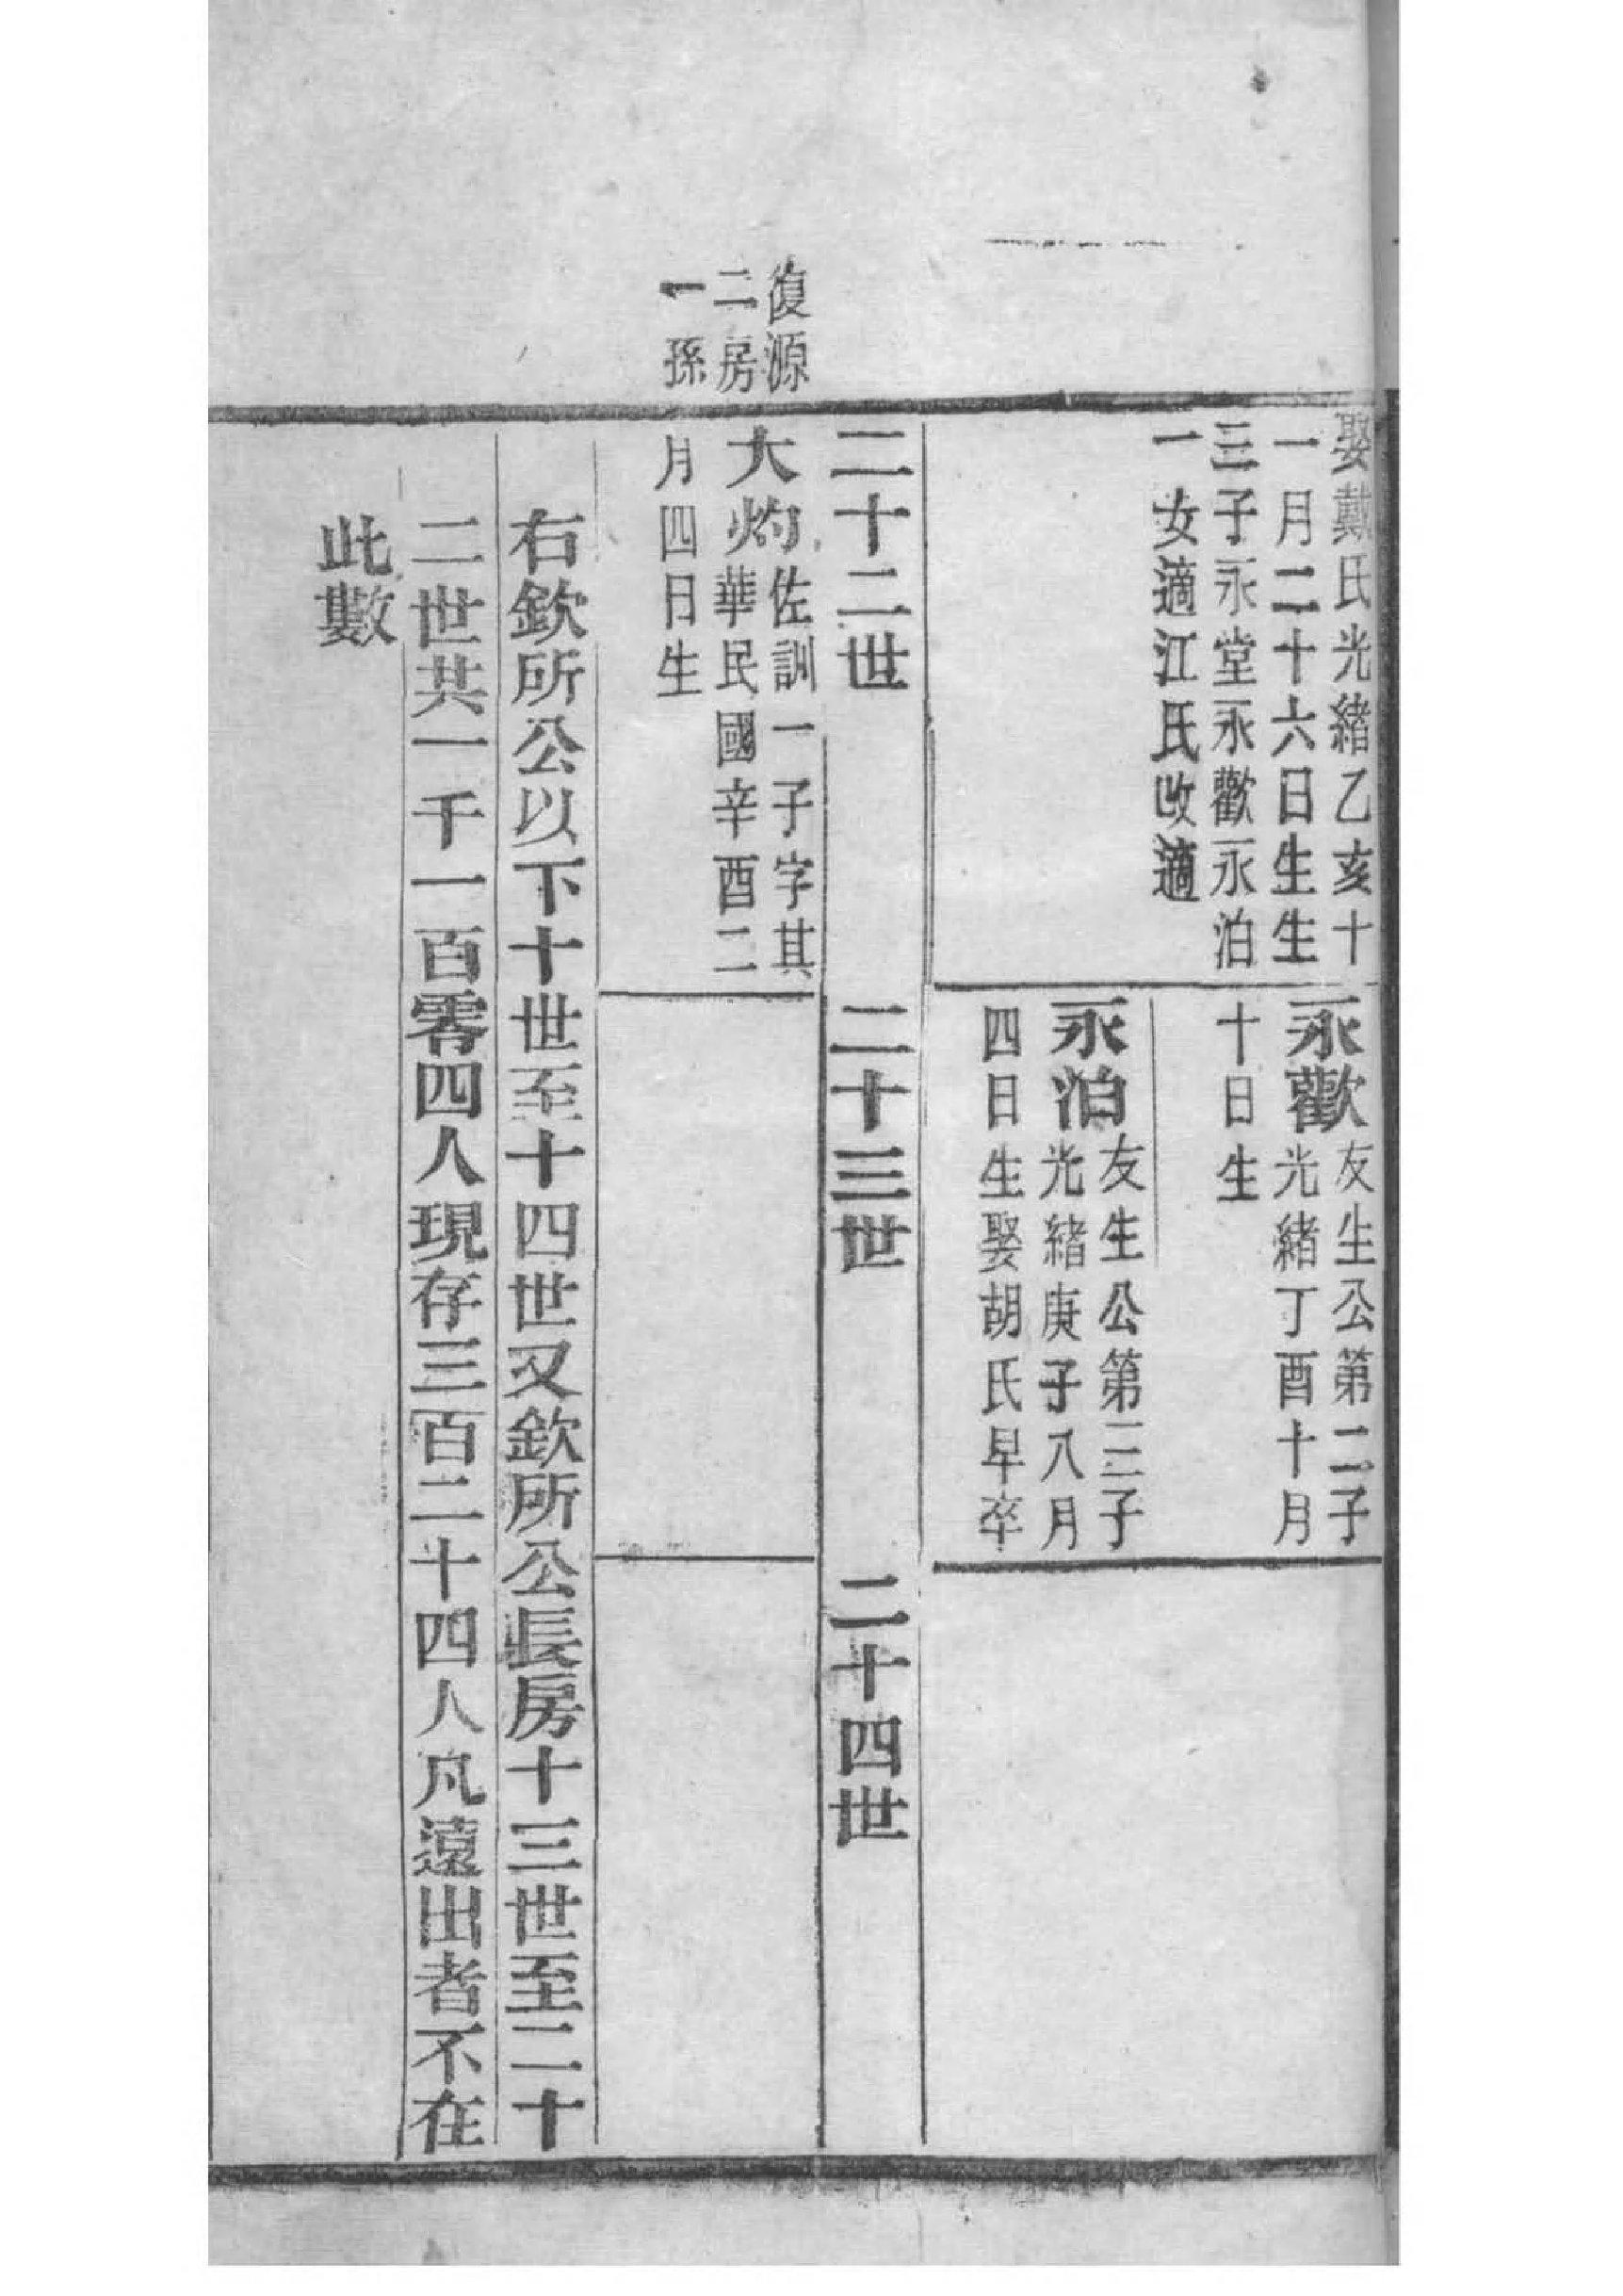 娶戴氏光緒乙亥十
一月二十六日生生
三子永堂永歡永泊
一女適江氏改適
永歡友生公第二子
光緒丁酉十月
十日生
永泊友生公第三子
光緒庚子八月
四日生娶胡氏早卒
二十二世
二十三世
二十四世
復源
二房
一孫
大灼佐訓一子字其
華民國辛酉二
月四日生
右欽所公以下十世至十四世又欽所公長房十三世至二十
二世共一千一百零四人現存三百二十四人凡遠出者不在
此數